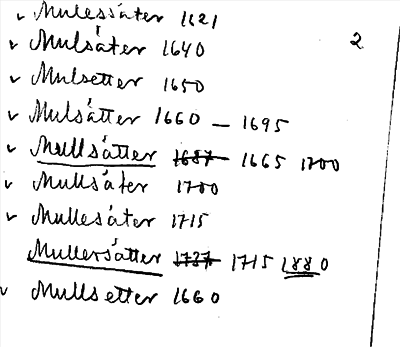 v Mulessäter 1621
v Mulsäter 1640 2
v Mulsetter 1650
v Mulsätter 1660 – 1695
v Mullsätter 1687 1665 1700
v Mullsäter 1700
v Mullesäter 1715
Mullersätter 1737 1715 1880
v Mullsetter 1660